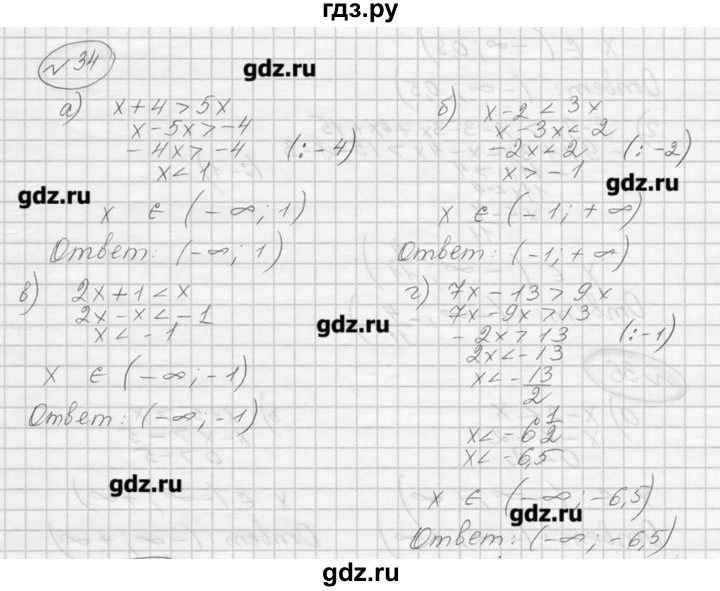 гдз.ру
№ 34
gdz.ru
а) x + 4 > 5x
x - 5x > -4
-4x > -4 (: -4)
x < 1
gdz.ru
x ∈ (-∞; 1)
Ответ: (-∞; 1)
б) x - 2 < 3x
x - 3x < 2
-2x < 2 (: -2)
x > -1
gdz.ru
x ∈ (-1; +∞)
Ответ: (-1; +∞)
в) 2x + 1 < x
2x - x < -1
x < -1
gdz.ru
x ∈ (-∞; -1)
Ответ: (-∞; -1)
gdz.ru
г) 7x - 13 > 9x
7x - 9x > 13
-2x > 13 (: -1)
2x < -13
x < -13/2
x < -6 1/2
x < -6,5
x ∈ (-∞; -6,5)
gdz.ru
Ответ: (-∞; -6,5)
gdz.ru